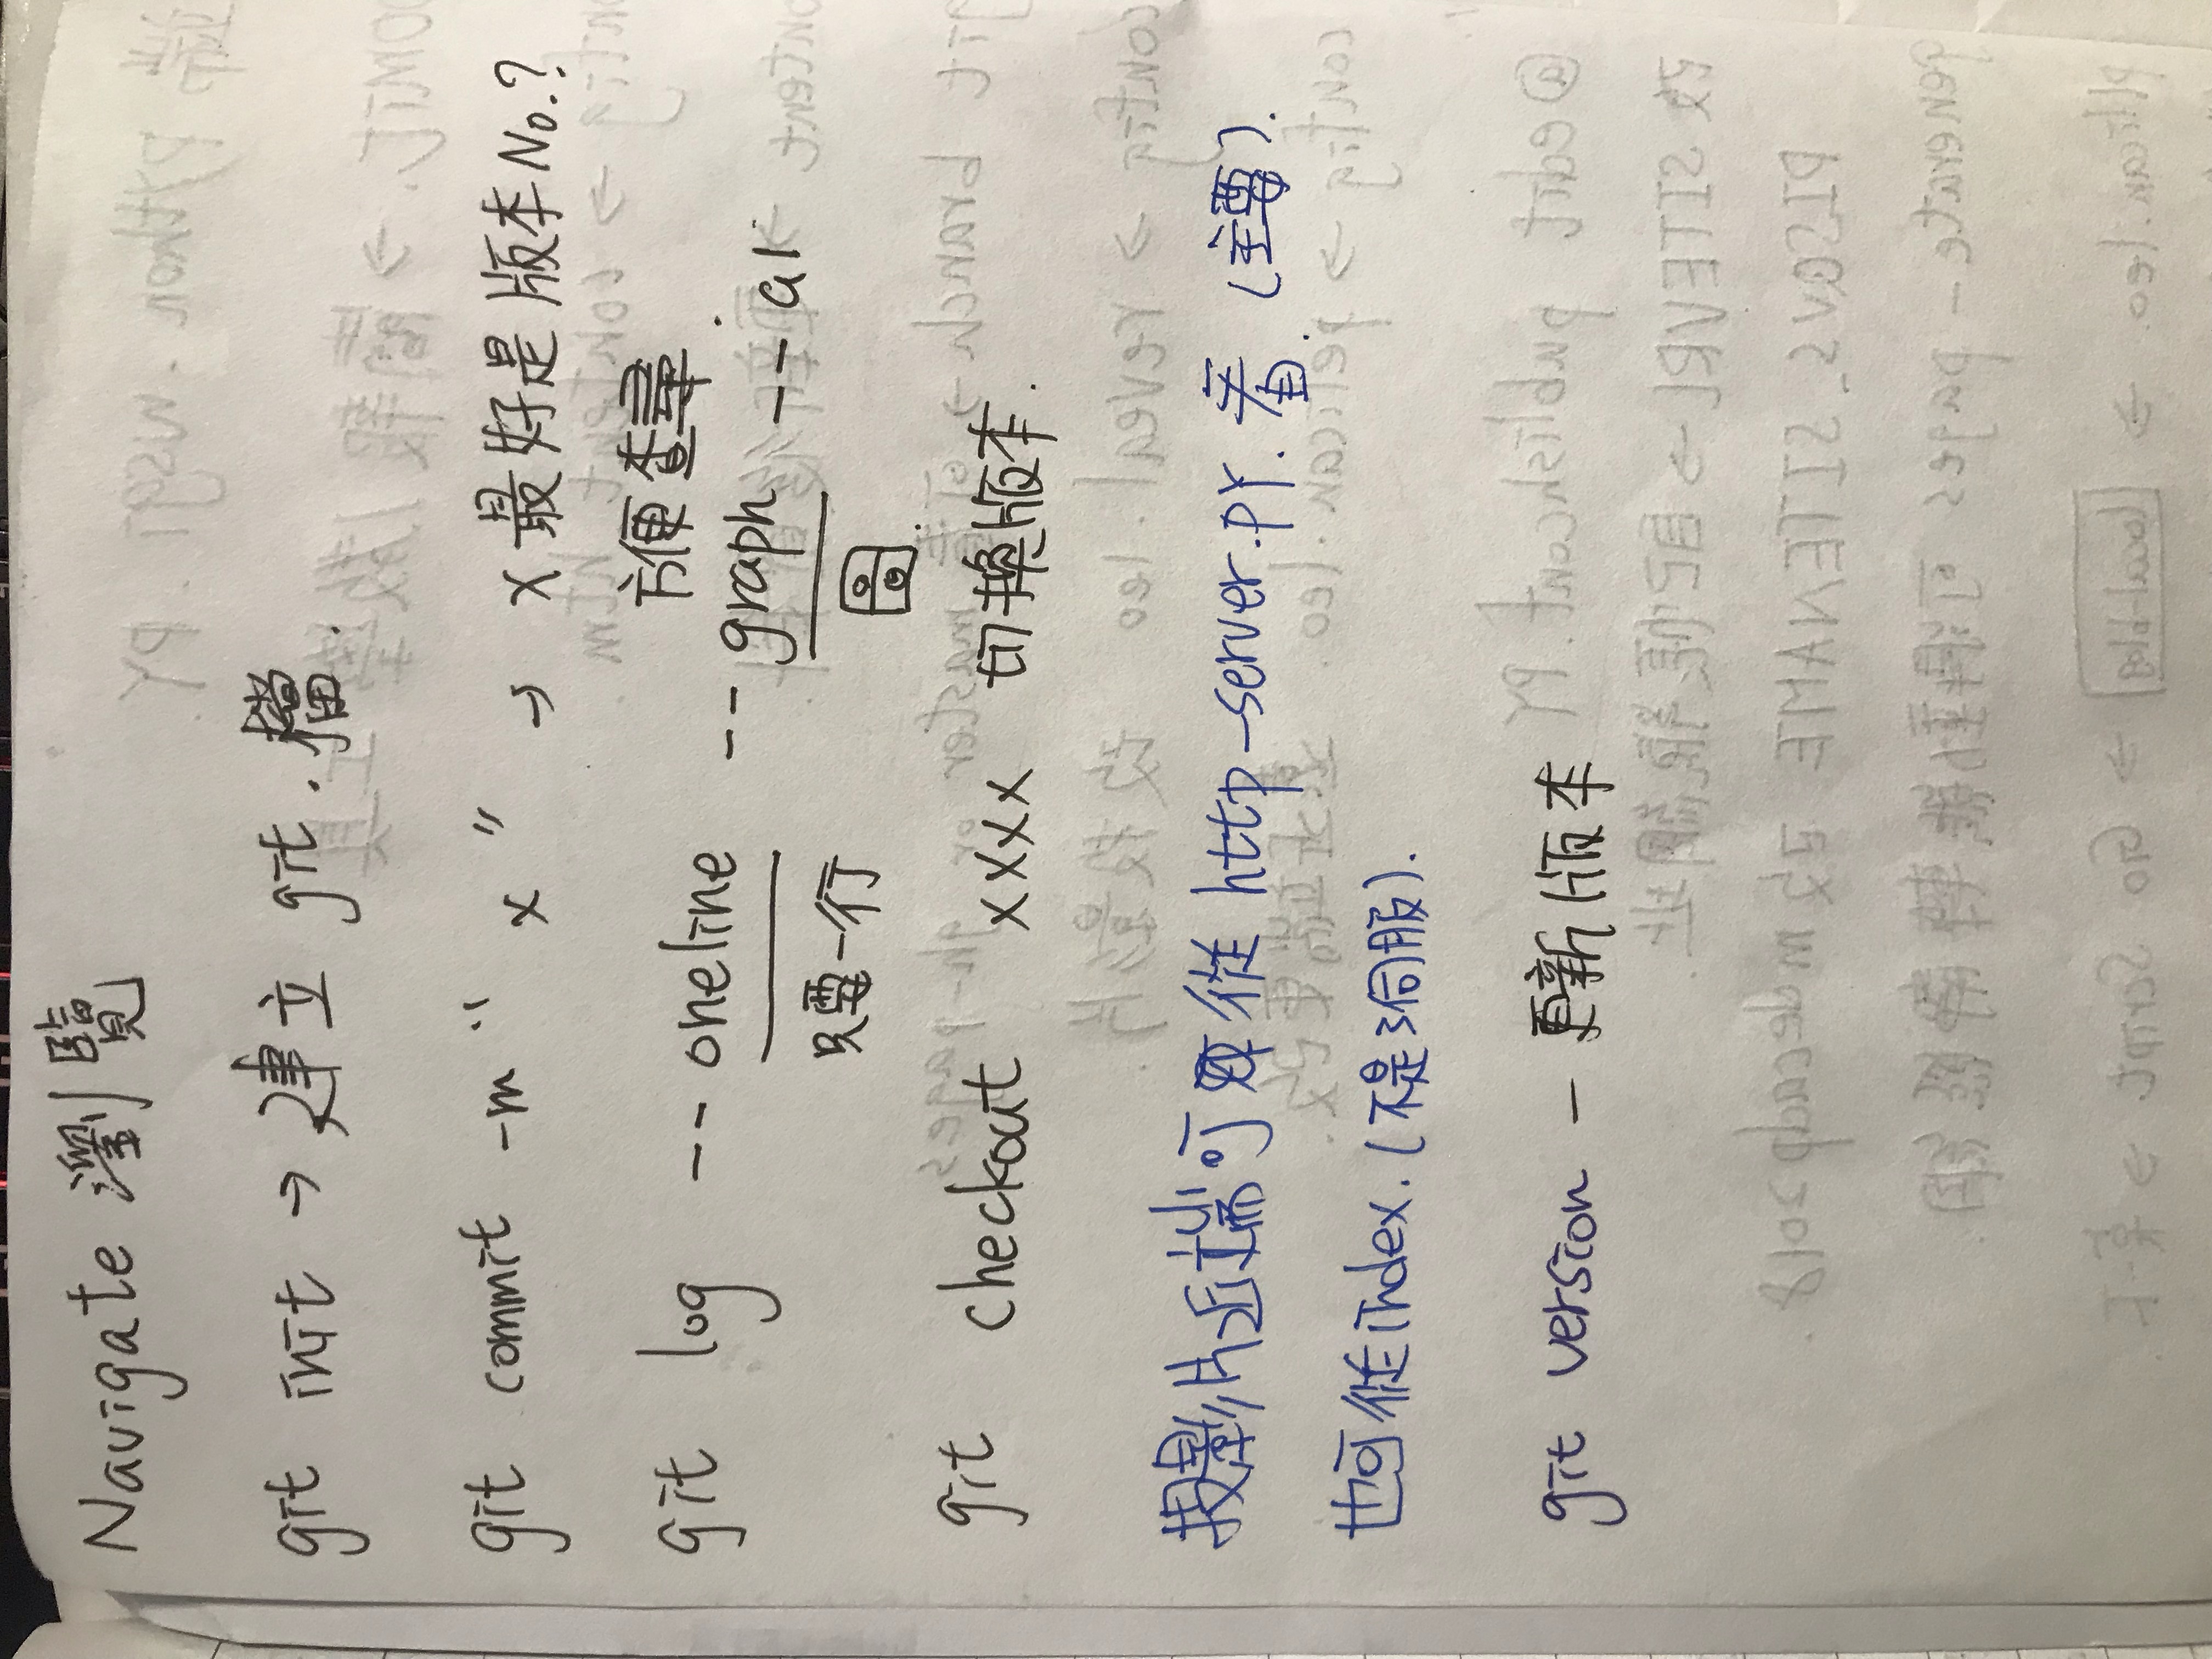 Navigate 瀏覽
git init → 建立 git . 檔.
git commit -m " x " → x 最好是版本No.?
方便查尋.
git log -- oneline -- graph -- al
只要一行 圖.
git checkout xxxx 切換版本.
投影片近端可 從 http-server.py. 看. (主要).
也可從index. (不是 伺服).
git version - 更新版本